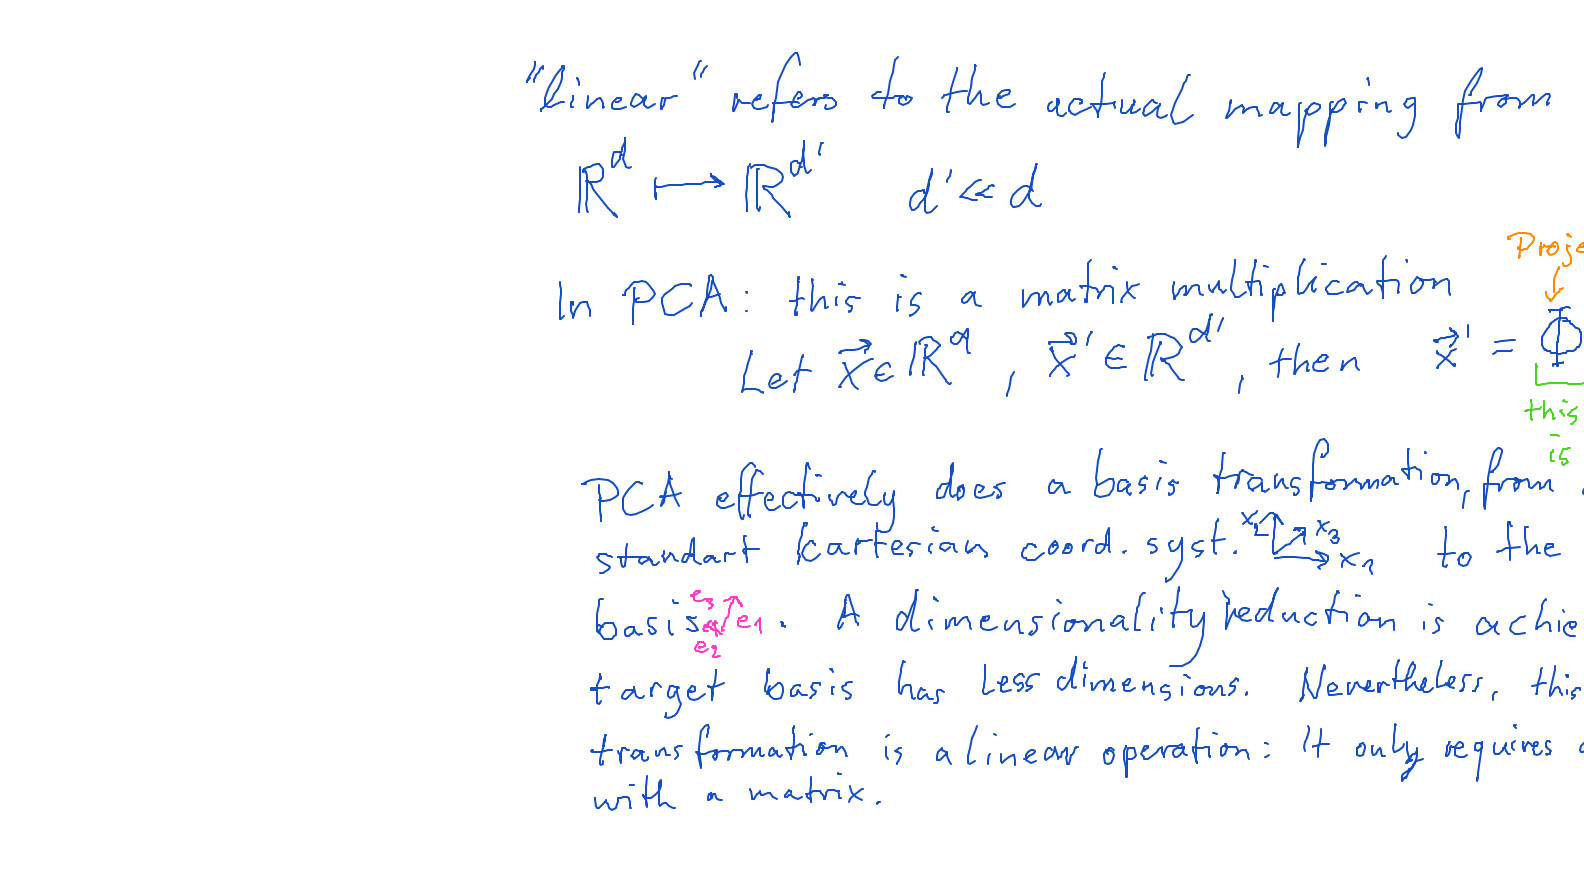 "linear" refers to the actual mapping from
ℝᵈ ↦ ℝᵈ' d' << d
Proje
In PCA: this is a matrix multiplication
Let x⃗ ∈ ℝᵈ, x⃗' ∈ ℝᵈ', then x⃗' = Φ
this
is
PCA effectively does a basis transformation, from
standart kartesian coord. syst. x₂ x₃ x₁ to the
basis e₃ e₁ e₂. A dimensionality reduction is achie
target basis has less dimensions. Nevertheless, this
transformation is a linear operation: It only requires a
with a matrix.